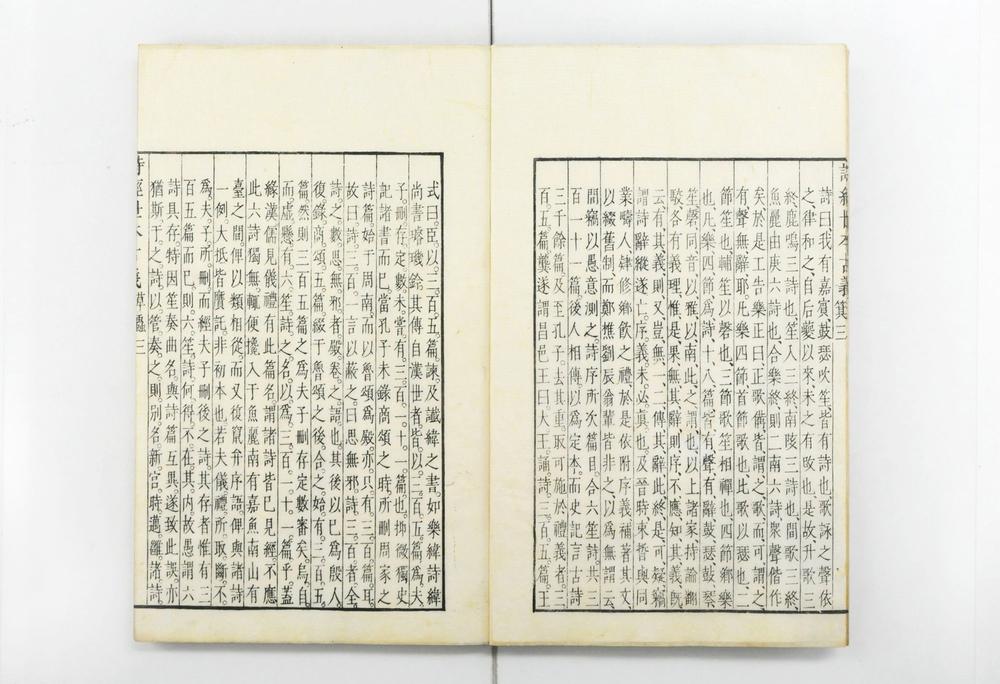 詩經世本古義
詩曰我有嘉賓鼓瑟吹笙皆有詩也歌詠之聲依
之律和之自后夔以來未之有改也是故升歌三
終鹿鳴三詩也笙入三終南陔三詩也間歌三終
魚麗由庚六詩也合樂三終則二南六詩衆聲偕作
矣於是工告樂正曰正歌備皆謂之歌而可謂之
有聲無辭耶凡樂四節首節歌也比歌以瑟也二
節笙也輔笙以磬也三節歌笙相禪也四節鄉樂
也凡樂四節為詩十八篇皆有聲有辭鼓瑟鼓琴
笙磬同音以雅以南此之謂也以上諸家持論翻
駮各有義理惟是果無其辭則序不應知其義既
云有其義則又豈無一二傳其辭此終是可疑竊
謂詩辭縱遂亡序義未必真也及晉時束皙與同
業疇人肄修鄉飲之禮於是依附序義補著其文
以綴舊制而鄭樵劉辰翁輩皆非之以為無謂云
間竊以愚意測之詩序所次篇目合六笙詩共三
百一十一篇後人相傳以為定本而史記言古詩
三千餘篇及至孔子去其重取可施於禮義者三
百五篇龔遂謂昌邑王曰大王誦詩三百五篇王
式曰臣以三百五篇諫及讖緯之書如樂緯詩緯
尚書璿璣鈐其傳自漢世者皆以三百五篇為夫
子刪存定數未嘗有三百一十一篇也抑微獨史
記諸書而已當孔子未錄商頌之時所刪周家之
詩篇始于周南而以魯頌為殿亦只有三百篇耳
故曰詩三百一言以蔽之曰思無邪詩三百者全
詩之數思無邪者殿卷之語也其後以已為殷人
復錄商頌五篇綴于魯頌之後合之始有三百五
篇然則三百五篇之為夫子刪存定數審矣烏自
而虛懸有六笙詩之名以為三百一十一篇乎蓋
緣漢儒見儀禮有此篇名謂諸詩皆巳見經不應
此六詩獨無輒便攙入于魚麗南有嘉魚南山有
臺之間俾以類相從而又復竄弁序語俾與諸詩
一例大抵皆贋託非初本也若夫儀禮所取斷不
為夫子所刪而經夫子刪後之詩其存者惟有三
百五篇而巳則六笙詩何得不在其內故愚謂六
詩具存特因笙奏曲名與詩篇互異遂致此誤亦
猶斯干之詩以管奏之則別名新宮時邁雝諸詩
詩經世本古義